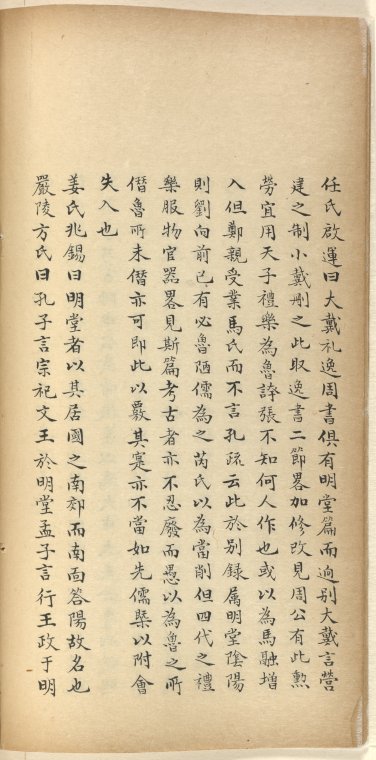 任氏啟運曰大戴礼逸周書俱有明堂篇而迥别大戴言營
建之制小戴刪之此取逸書二節畧加修改見周公有此勲
勞宜用天子禮樂為魯誇張不知何人作也或以為馬融增
入但鄭親受業馬氏而不言孔疏云此於别録属明堂陰陽
則劉向前已有必魯陋儒為之芮氏以為當削但四代之禮
樂服物官器畧見斯篇考古者亦不忍廢而愚以為魯之所
僭魯所未僭亦可即此以覈其寔亦不當如先儒槩以附會
失入也
姜氏兆錫曰明堂者以其居國之南郊而南面答陽故名也
嚴陵方氏曰孔子言宗祀文王於明堂孟子言行王政于明